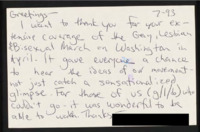 Greetings— 7-93
I want to thank you for your ex-
tensive coverage of the Gay, Lesbian
& Bisexual March on Washington in
April. It gave everyone a chance
to hear the ideas of our movement
not just catch a sensationalized
glimpse. For those of us (g/l/b) who
couldn't go - it was wonderful to be
able to watch. Thanks